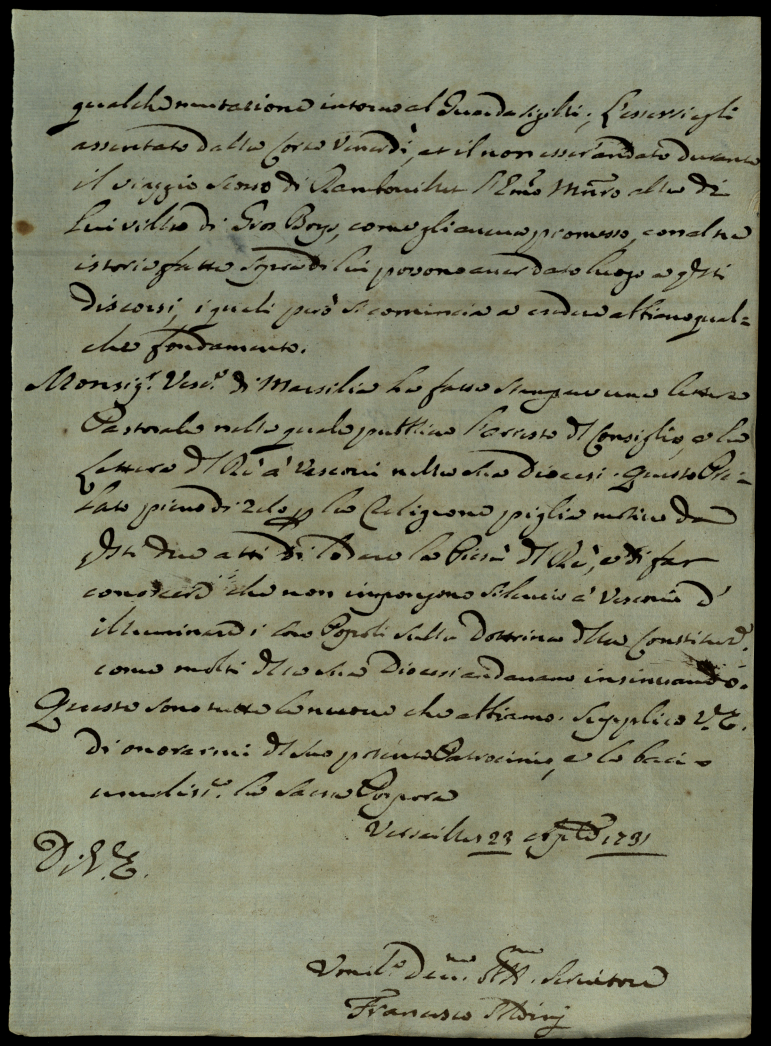 qualche mutatione intorno al Guardasigilli; L'essersi egli
assentato dalla Corte Venerdì, et il non esser andato durante
il viaggio scorso di Rambouillet l'Em̃o Mñro alla di
Lui villa di Gros Boys, come gli aveva promesso, con altre
istorie fatte sopra di lui possono aver dato luogo a q̃sti
discorsi, i quali però si comincia a credere abbiano qual=
che fondamento.
Monsig.r Vesc.o di Marsilia ha fatto stampare una lettera
Pastorale nella quale publica l'arresto dl Consiglio, e la
Lettera dl Rè a' Vescovi nella sua Diocesi. Questo Pre=
lato pieno di zelo p la Religione piglia motivo da
q̃sti due atti di lodare la Pietà dl Rè, e di far
conoscere che non impongono silencio a' Vescovi d'
illuminare i loro Popoli sulla Dottrina dlla Constituz.e,
come molti dlla sua Diocesi andavano insinuando.
Queste sono tutte le nuove che abbiamo. Supplico V.E.
di onorarmi dl suo potente Patrocinio, e le bacio
umilis.e la Sacra Porpora
Versailles 23 1731
Di V.E.
Umil.o Dev.mo Servitore
Francesco